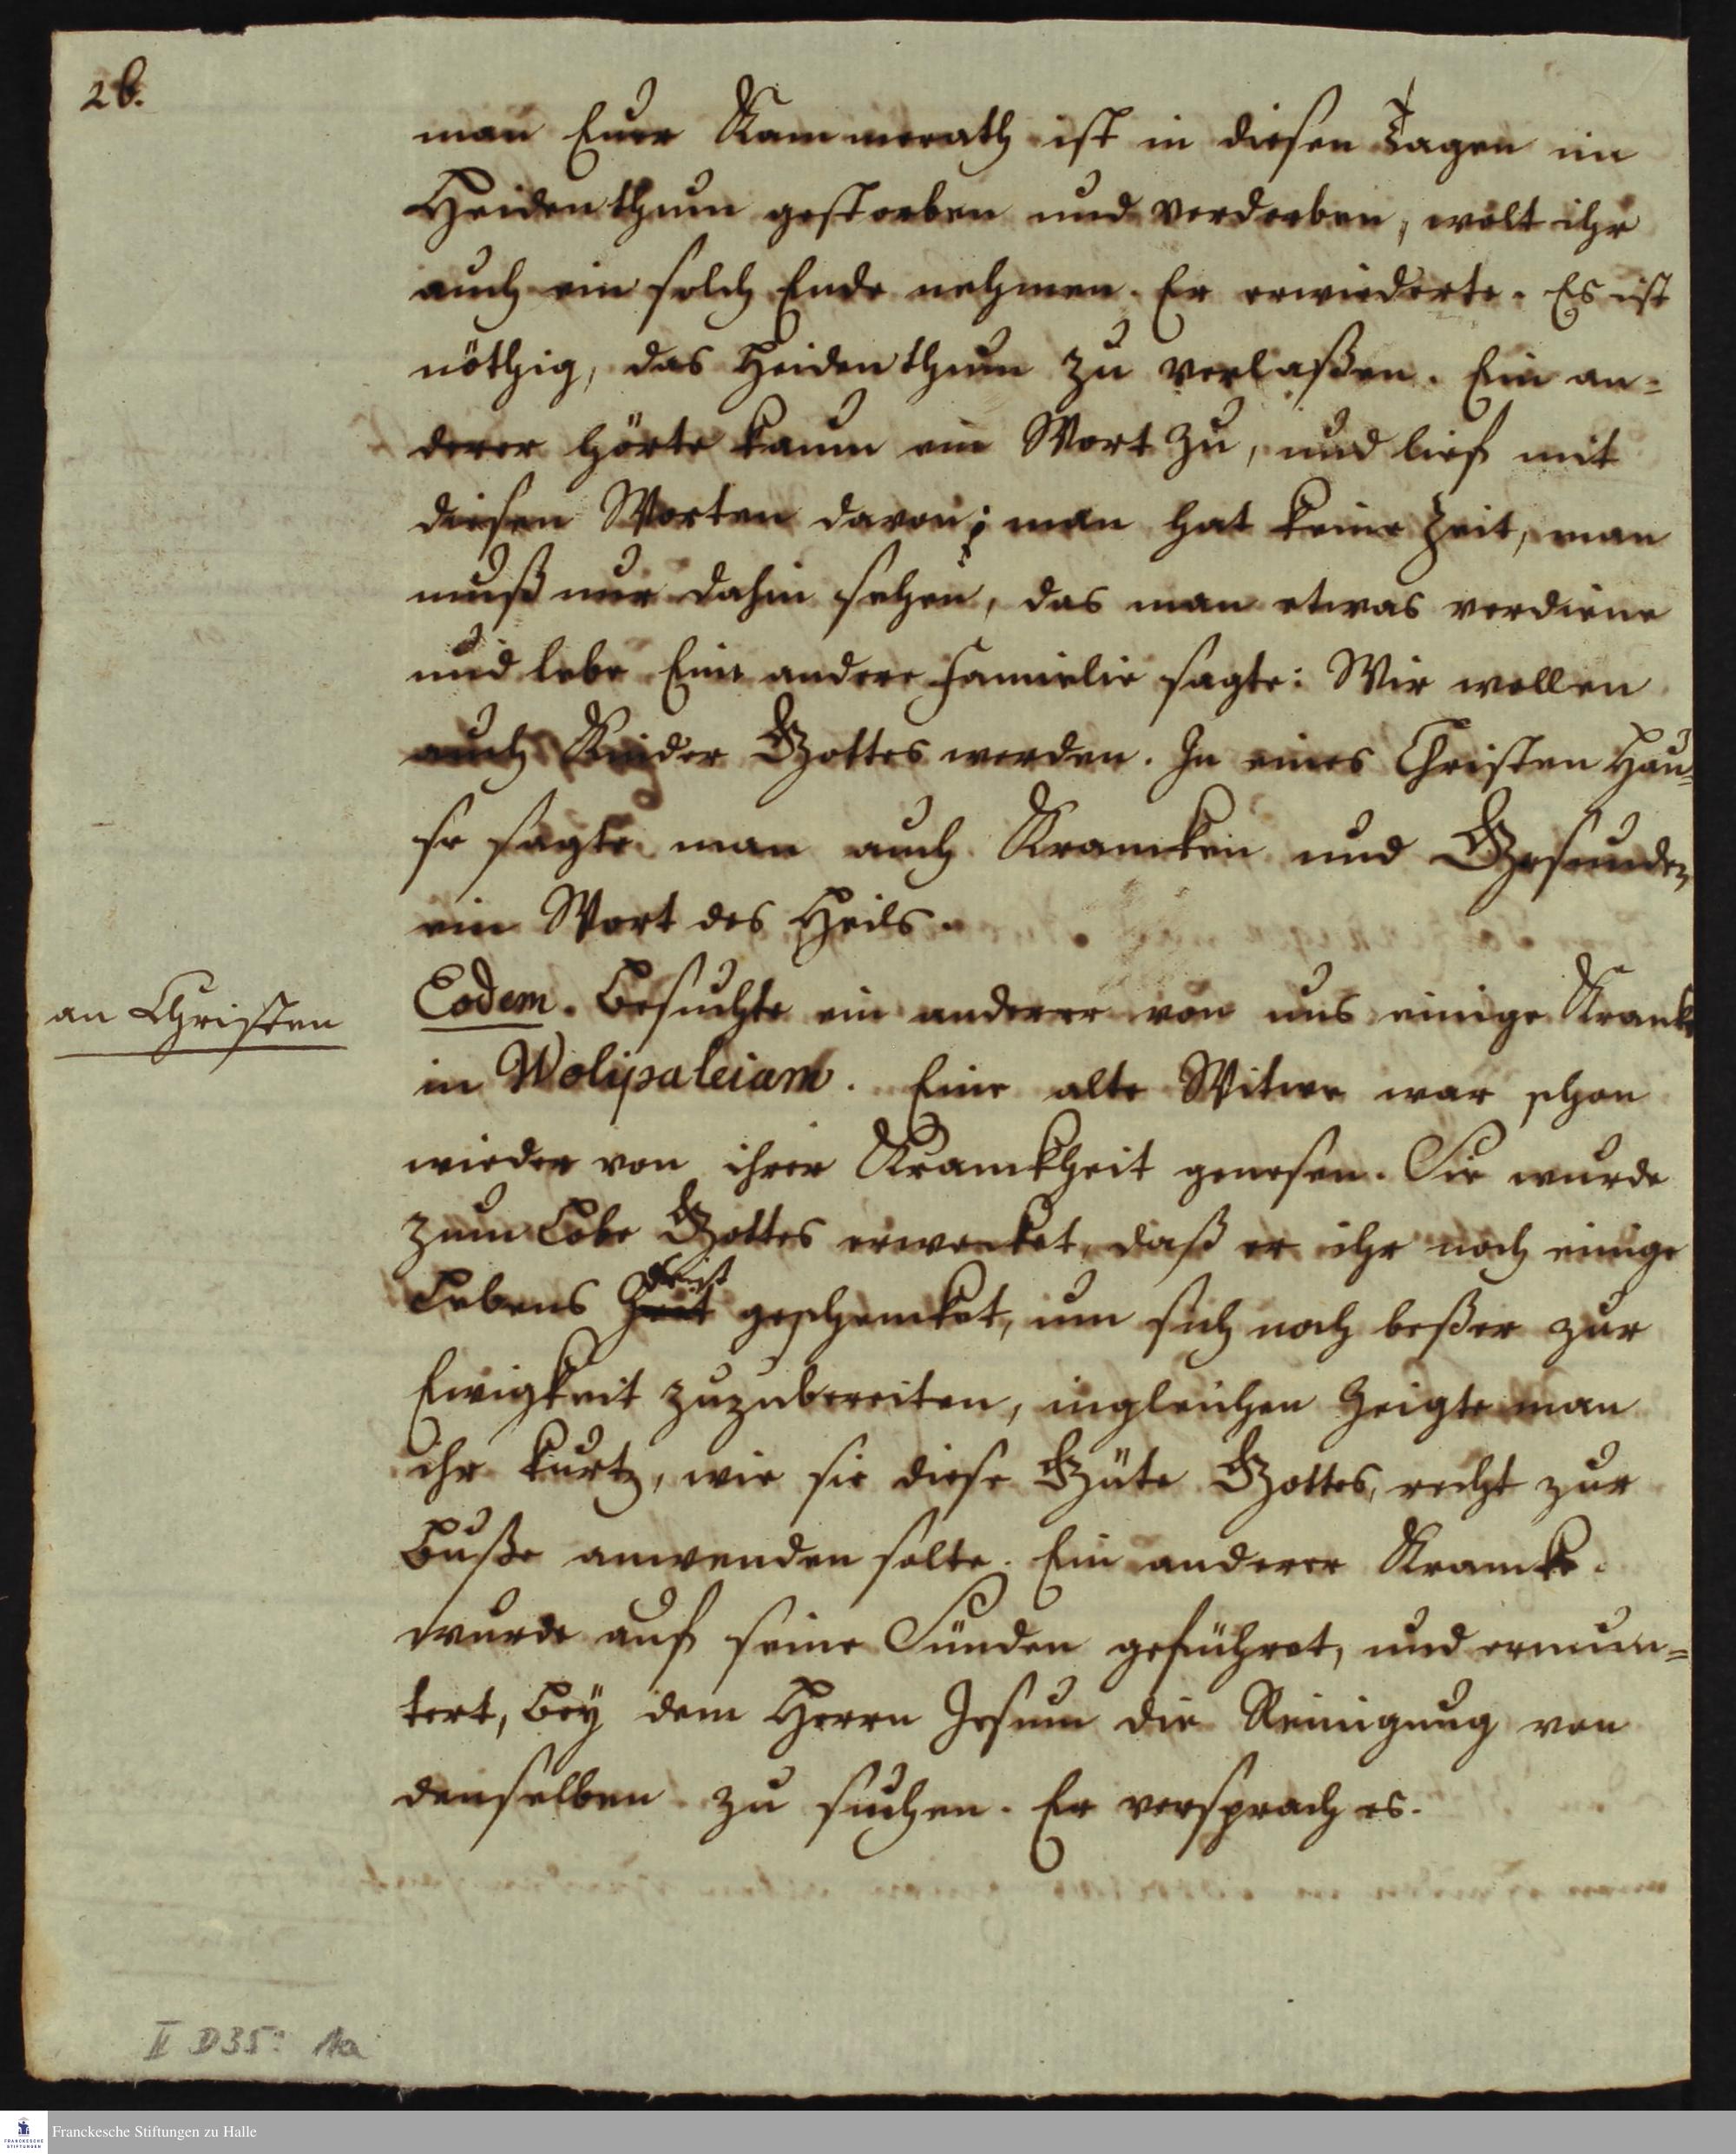 26.
man Euer Kammerath ist in diesen Tagen im
Heidenthum gestorben und verdorben, wolt ihr
auch ein solch Ende nehmen. Er erwiederte. Es ist
nöthig, das Heidenthum zu verlaßen. Ein an=
derer hörte kaum ein Wort zu, und lief mit
diesen Worten davon; man hat keine Zeit, man
muß nur dahin sehen, das man etwas verdiene
und lebe Eine andere Familie sagte: Wir wollen
auch Kinder Gottes werden. In eines Christen Hau=
se sagte man auch Krancken und Gesunden
ein Wort des Heils.
an Christen
Eodem. Besuchte ein anderer von uns einige Krancke
in Wolipaleiam. Eine alte Witwe war schon
wieder von ihrer Kranckheit genesen. Sie wurde
zum Lobe Gottes erwecket, daß er ihr noch einige
Lebens Zeit geschencket, um sich noch beßer zur
Ewigkeit zuzubereiten, ingleichen zeigte man
ihr kurtz, wie sie diese Güte Gottes, recht zur
Buße anwenden solte. Ein anderer Krancke.
wurde auf seine Sünden geführet, und ermun=
tert, bey dem Herrn Jesum die Reinigung von
denselben zu suchen. Er versprach es.
II D35: 11a
Franckesche Stiftungen zu Halle